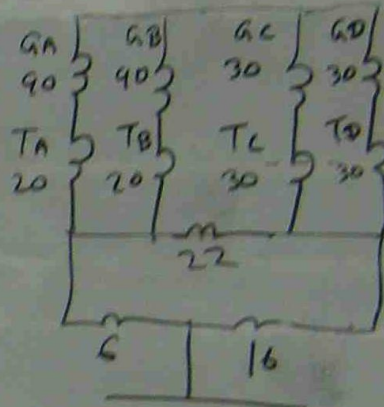 GA GB GC GD
90 90 30 30
TA TB TC TD
20 20 30 30
22
6 16